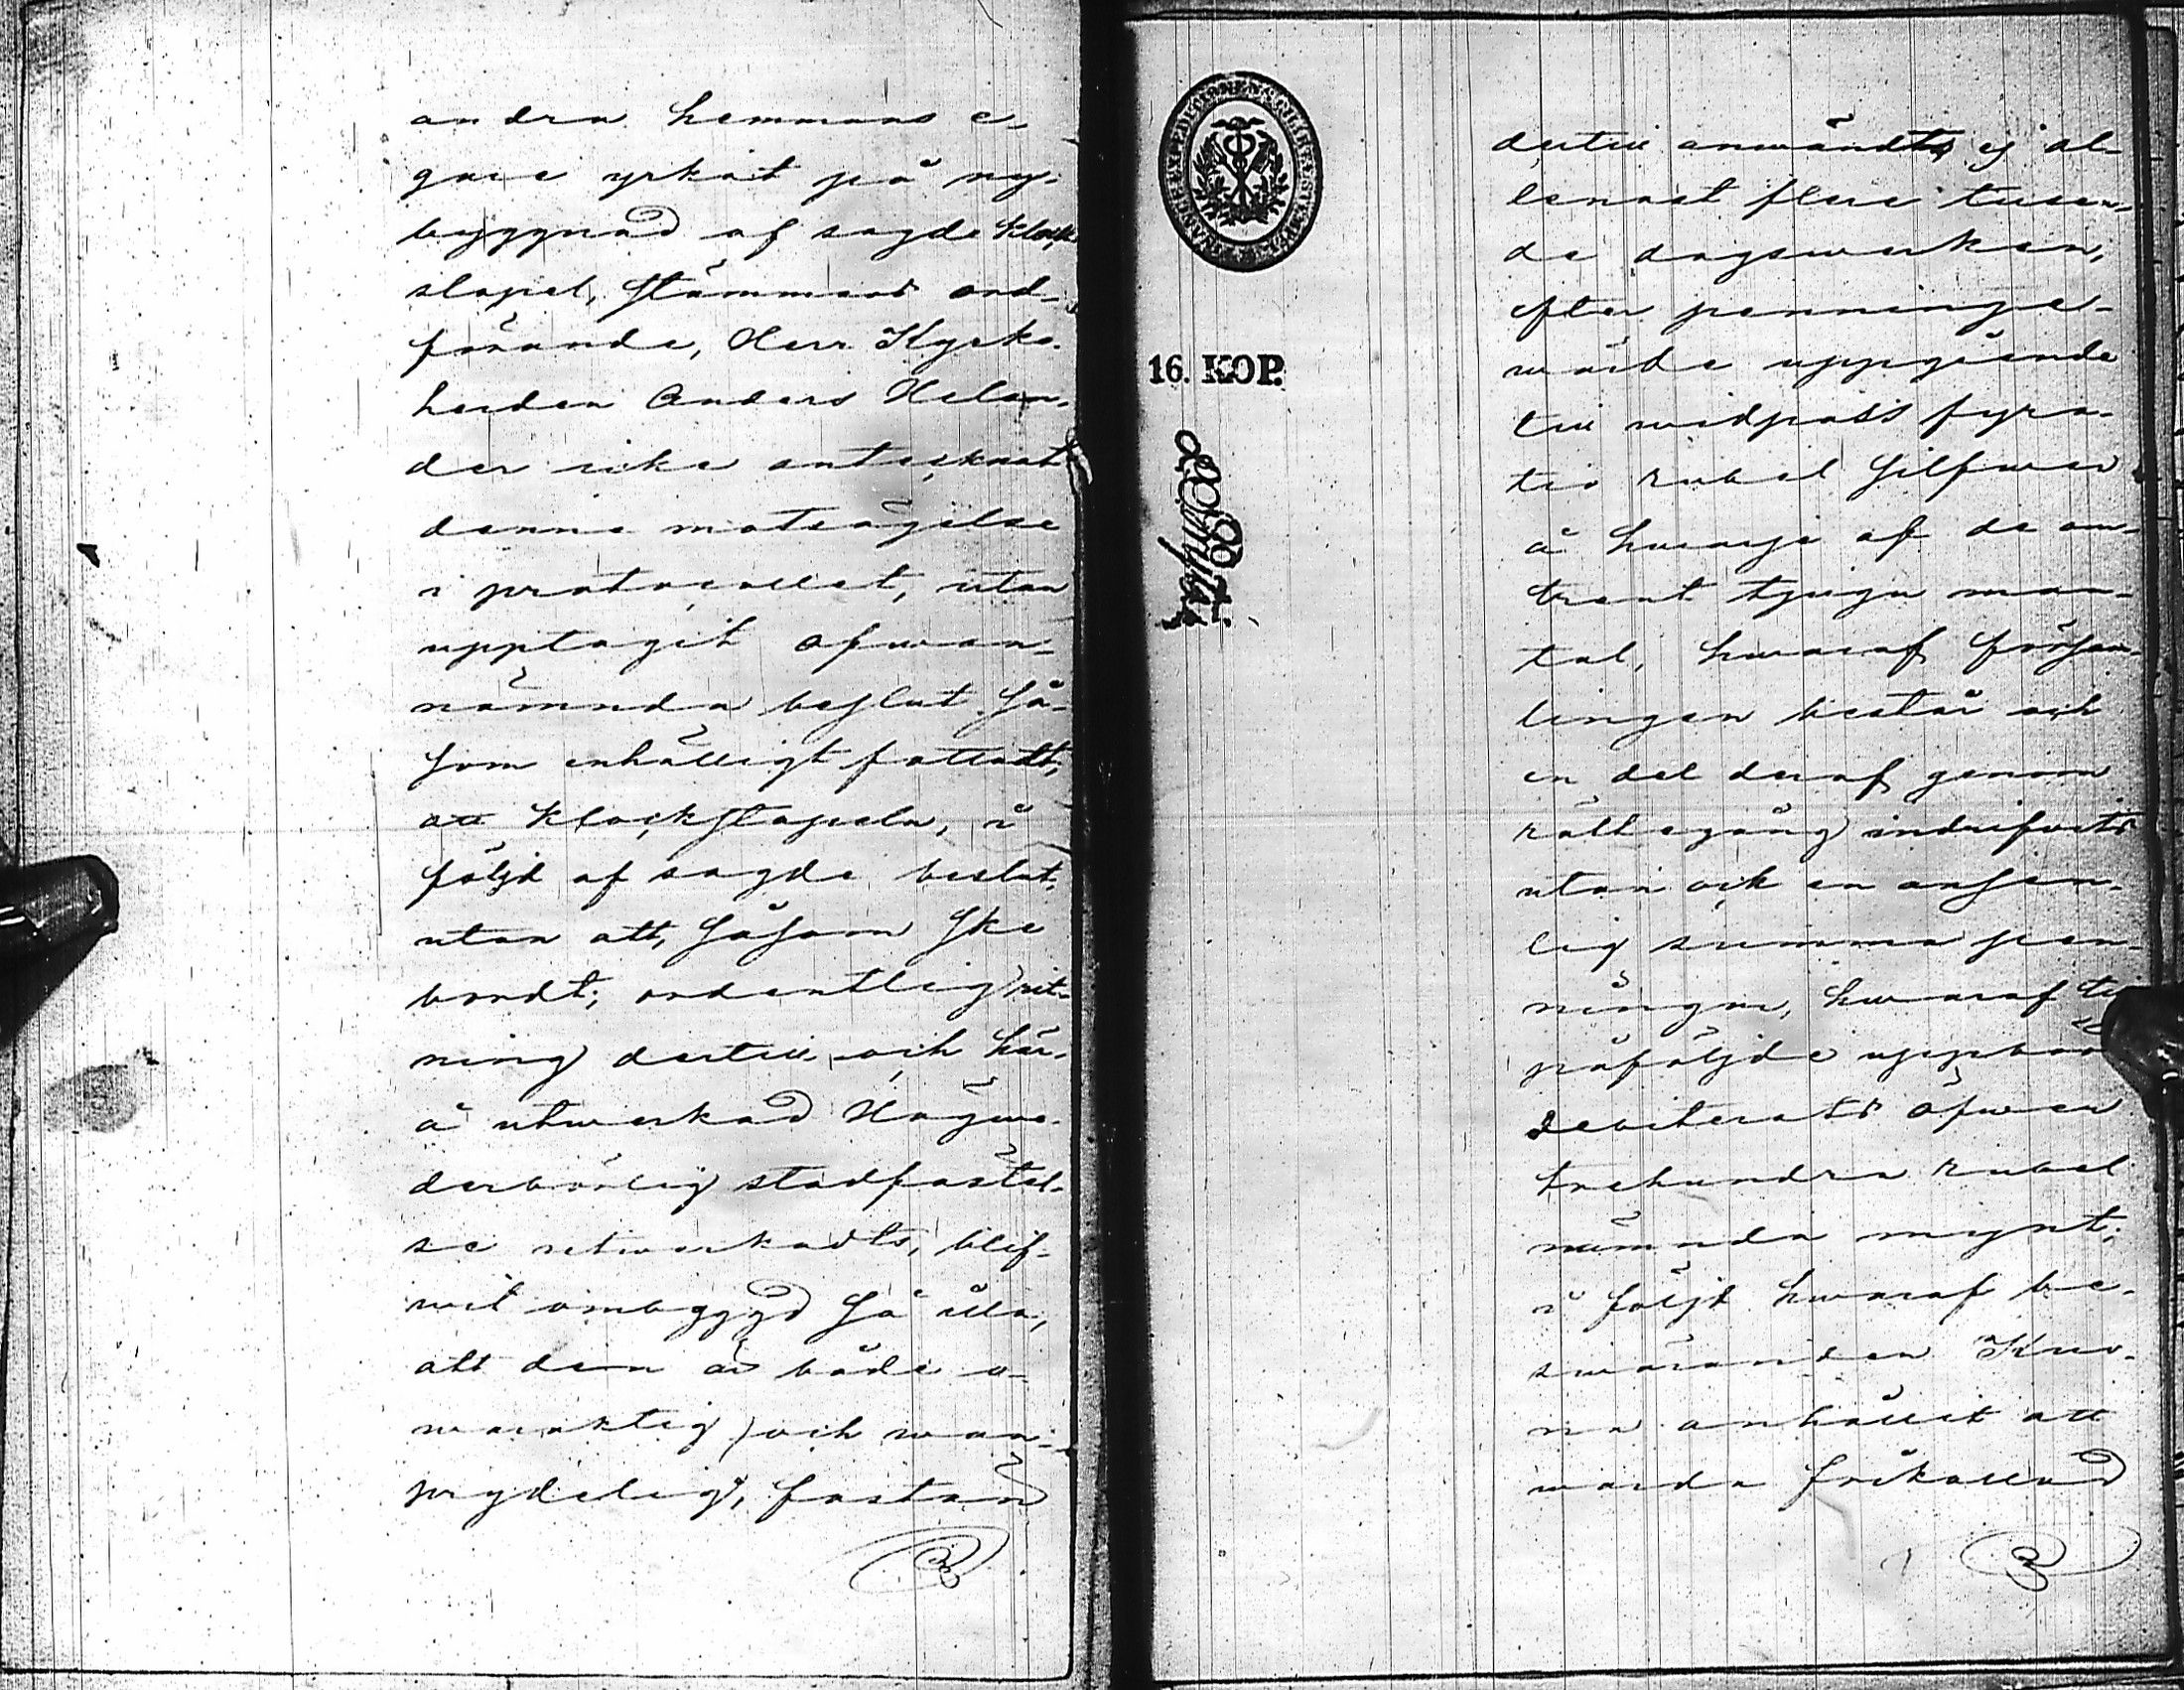 andra hemmans e-
gare yrkat på ny-
byggnad af sagde klock
stapel, Stämmans ord-
förande, Herr Kyrko-
herden Anders Helan-
der icke antecknat
denne motsägelse
i protocollet, utan
upptagit ofwan-
nämnda beslut så-
som enhälligt fattadt,
att klockstapeln, i
följd af sagde beslut,
utan att, såsom ske
bordt, ordentlig rit-
ning dertill och här-
å utwerkad Högwe-
derbörlig stadfästel-
se utwerkadts, blif-
wit ombyggd så illa,
att den är både o-
waraktig och wan-
prydelig, fastän
16. KOP.
dertill användts ej al-
lenast flere tusen-
de dagswerken,
efter penninge-
wärde uppgående
till widpass fyra-
tio rubel silfwer
å hwarje af de om-
trent tjugu man-
tal, hwaraf försam-
lingen består och
en del deraf genom
rättegång indrifwits
utan ock en ansen-
lig summa pen-
ningar, hwaraf
påföljde uppbörd
debiterats öfwer
trehundra rubel
nämnda mynt;
i följd hwaraf be-
swäranden Kuo-
na anhållit att
warda frikallad